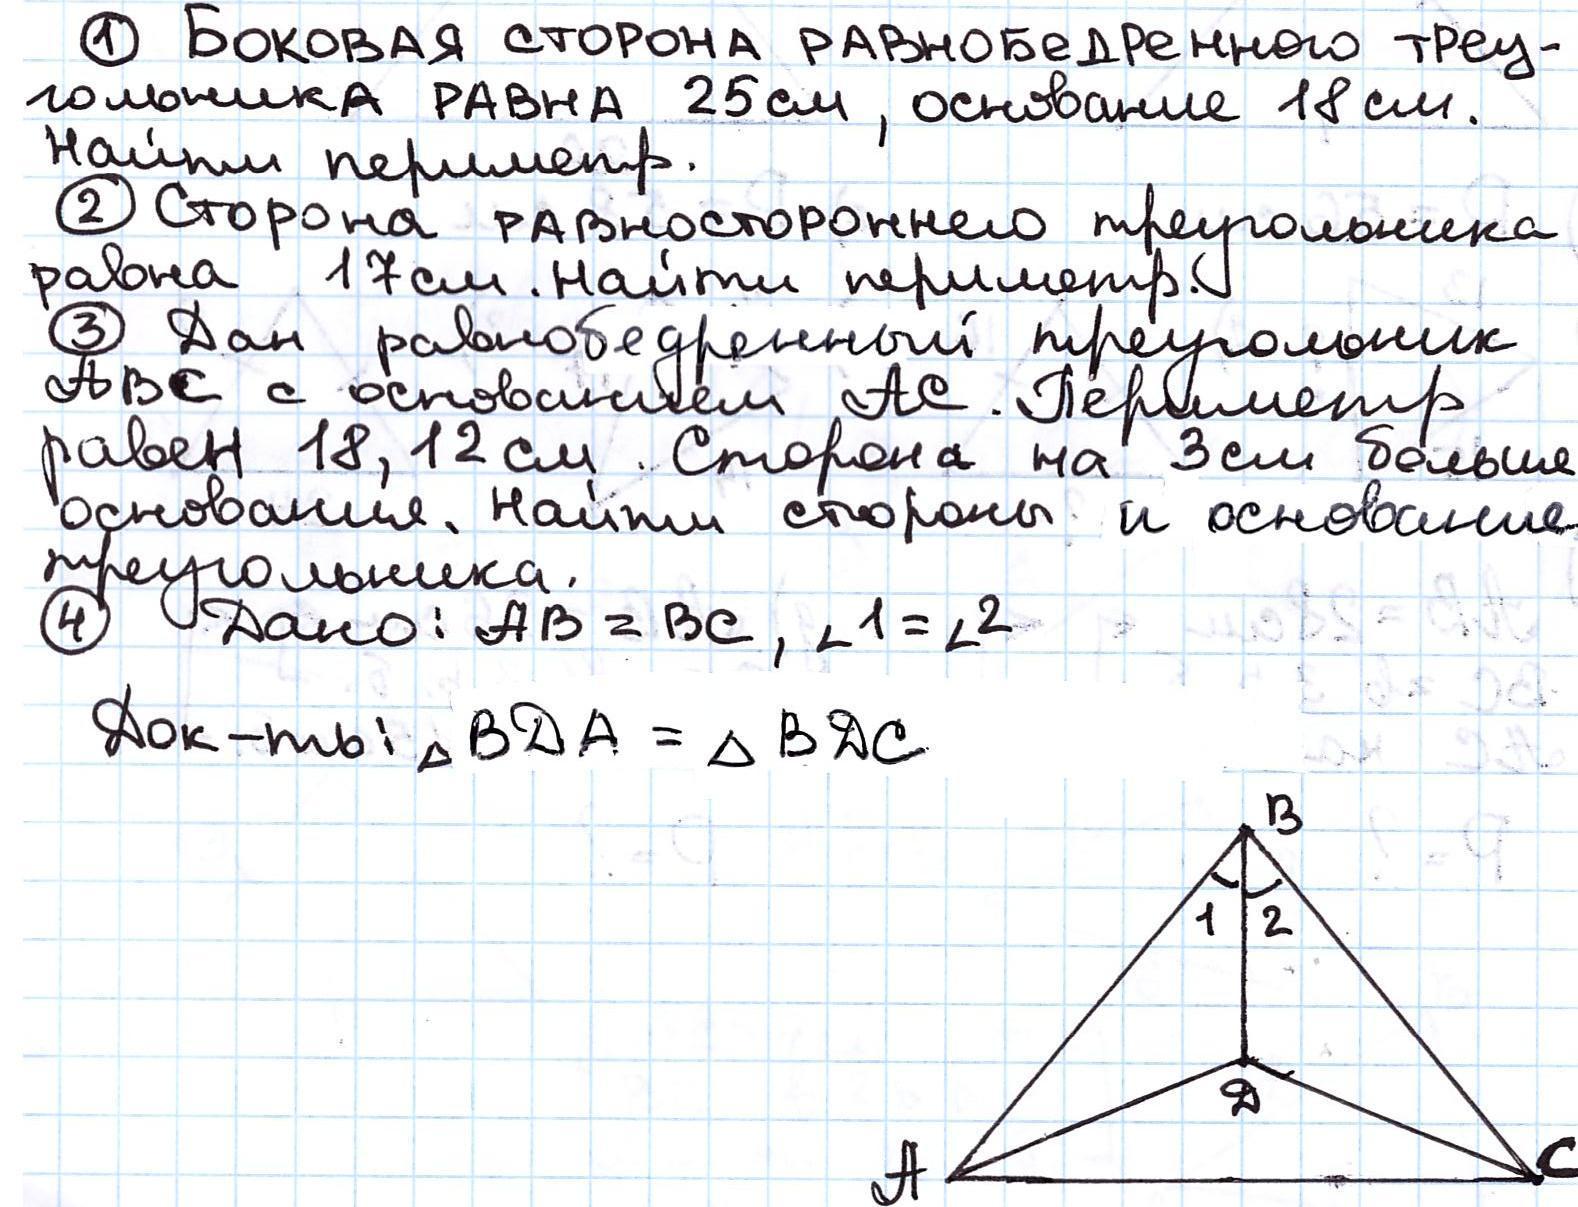 ① Боковая сторона равнобедренного треу-
гольника равна 25 см, основание 18 см.
Найти периметр.
② Сторона равностороннего треугольника
равна 17 см. Найти периметр.
③ Дан равнобедренный треугольник
ABC с основанием AC. Периметр
равен 18,12 см. Сторона на 3 см больше
основания. Найти стороны и основание
треугольника.
④ Дано: AB = BC, ∠1 = ∠2
Док-ть: △BDA = △BDC
B
1 2
D
A C